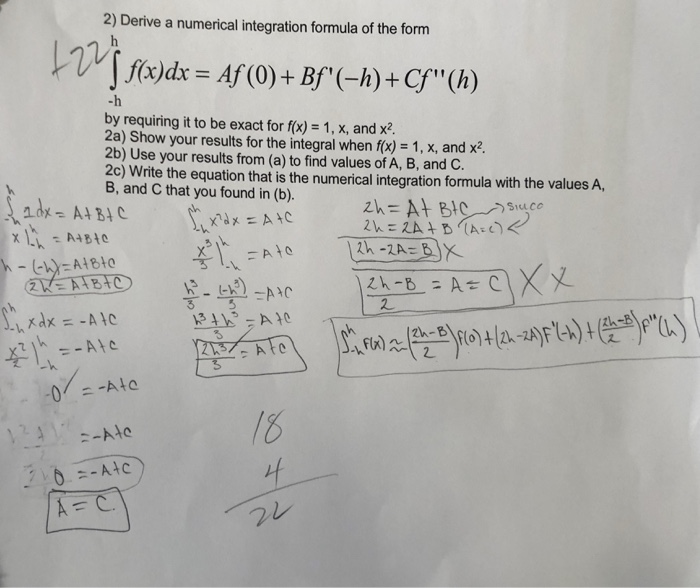 2) Derive a numerical integration formula of the form
+22
∫_{-h}^{h} f(x)dx = Af(0) + Bf'(-h) + Cf''(h)
by requiring it to be exact for f(x) = 1, x, and x².
2a) Show your results for the integral when f(x) = 1, x, and x².
2b) Use your results from (a) to find values of A, B, and C.
2c) Write the equation that is the numerical integration formula with the values A,
B, and C that you found in (b).
∫_{-h}^{h} 1dx = A+B+C
x |_{-h}^{h} = A+B+C
h - (-h) = A+B+C
2h = A+B+C
∫_{-h}^{h} xdx = -A+C
x²/2 |_{-h}^{h} = -A+C
-0 = -A+C
= -A+C
0 = -A+C
A = C
∫_{-h}^{h} x²dx = A+C
x³/3 |_{-h}^{h} = A+C
h³/3 - (-h³)/3 = A+C
h³+h³/3 = A+C
2h³/3 = A+C
18
4
22
2h = A+B+C → since
2h = 2A+B (A=C)
2h-2A=B X
2h-B/2 = A = C X X
∫_{-h}^{h} F(x) ≈ (2h-B/2)f(0)+(2h-2A)F'(-h)+(2h-B/2)F''(h)